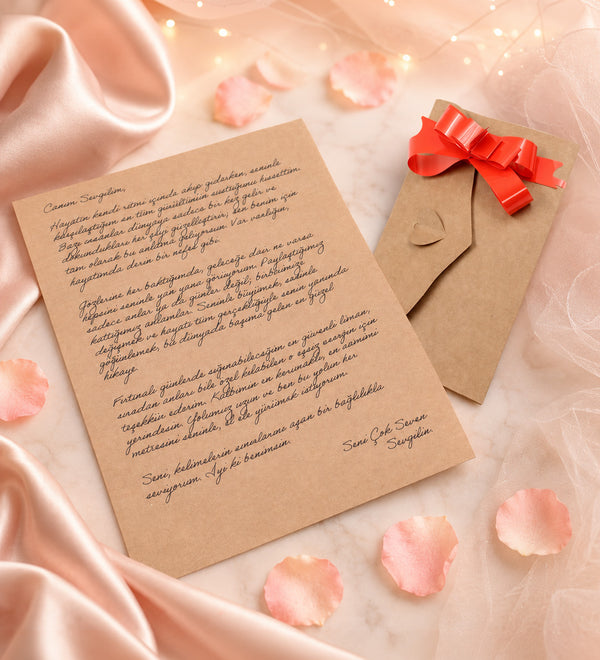 Canım Sevgilim,
Hayatın kendi ritmi içinde akıp giderken, seninle
karşılaştığım an tüm gürültünün sustuğunu hissettim.
Bazı insanlar dünyaya sadece bir kez gelir ve
dokundukları her şeyi güzelleştirir; sen benim için
tam olarak bu anlama geliyorsun. Var varlığın,
hayatımda derin bir nefes gibi.
Gözlerine her baktığımda, geleceğe dair ne varsa
hepsini seninle yan yana görüyorum. Paylaştığımız
sadece anlar ya da günler değil; birbirimize
kattığımız anlamlar. Seninle büyümek, seninle
değişmek ve hayatı tüm gerçekliğiyle senin yanında
göğünlemek, bu dünyada başıma gelen en güzel
hikaye.
Fırtınalı günlerde sığınabileceğim en güvenli liman,
sıradan anları bile özel kılabilen o eşsiz eserğen için
teşekkür ederim. Kalbimin en kerinaktı, en aamimi
yerindesin. Yolumuz uzun ve ben bu yolun her
metresini seninle, el ele yürümek istiyorum.
Seni, kelimelerin sınırlarını aşan bir bağlılıkla
seviyorum. İyi ki benimsin.
Seni Çok Seven
Sevgilin